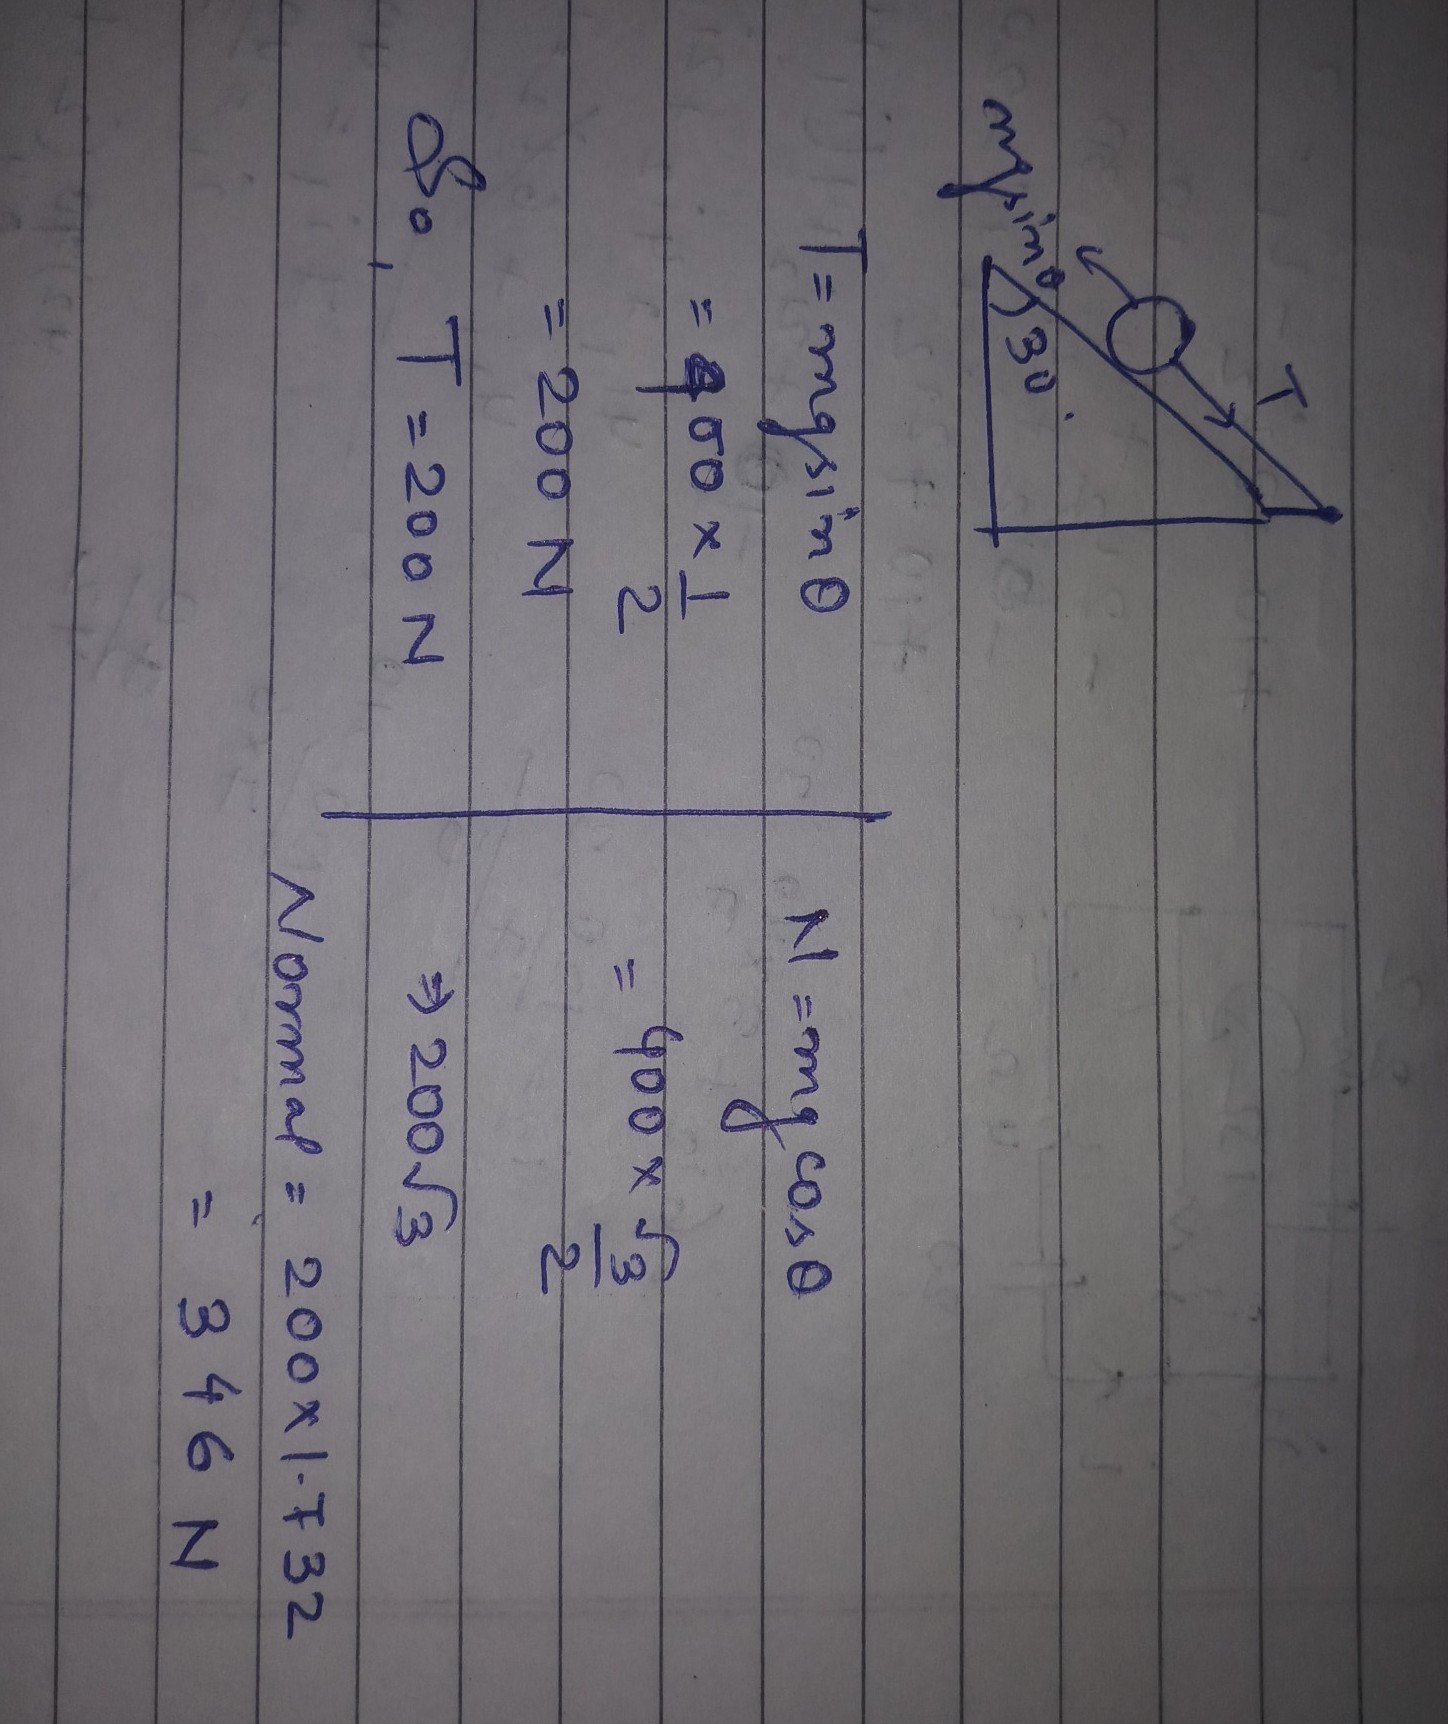 T
mg sin θ
30°
T = mg sin θ
= 400 × 1/2
= 200 N
So, T = 200 N
N = mg cos θ
= 400 × √3/2
⇒ 200√3
Normal = 200 × 1.732
= 346 N